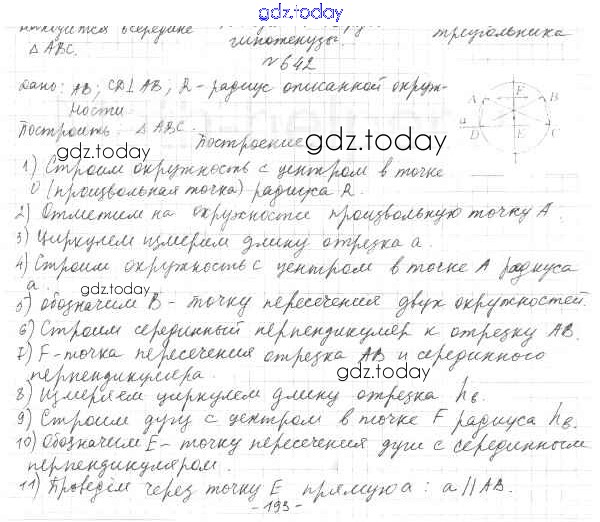 gdz.today
находится в середине гипотенузы. треугольника
△ABC.
№642
Дано: AB; CD⊥AB; R - радиус описанной окруж-
ности
Построить: △ABC.
gdz.today
Построение
gdz.today
1) Строим окружность с центром в точке
O (произвольная точка) радиуса R.
gdz.today
2) Отметим на окружности произвольную точку A.
3) Циркулем измерим длину отрезка a.
4) Строим окружность с центром в точке A радиуса
a.
gdz.today
5) Обозначим B - точку пересечения двух окружностей.
6) Строим серединный перпендикуляр к отрезку AB.
7) F - точка пересечения отрезка AB и серединного
перпендикуляра.
gdz.today
8) Измеряем циркулем длину отрезка h_в.
9) Строим дугу с центром в точке F радиуса h_в.
10) Обозначим E - точку пересечения дуги с серединным
перпендикуляром.
gdz.today
11) Проведём через точку E прямую a : a || AB.
- 193 -
A F B
a
D E C